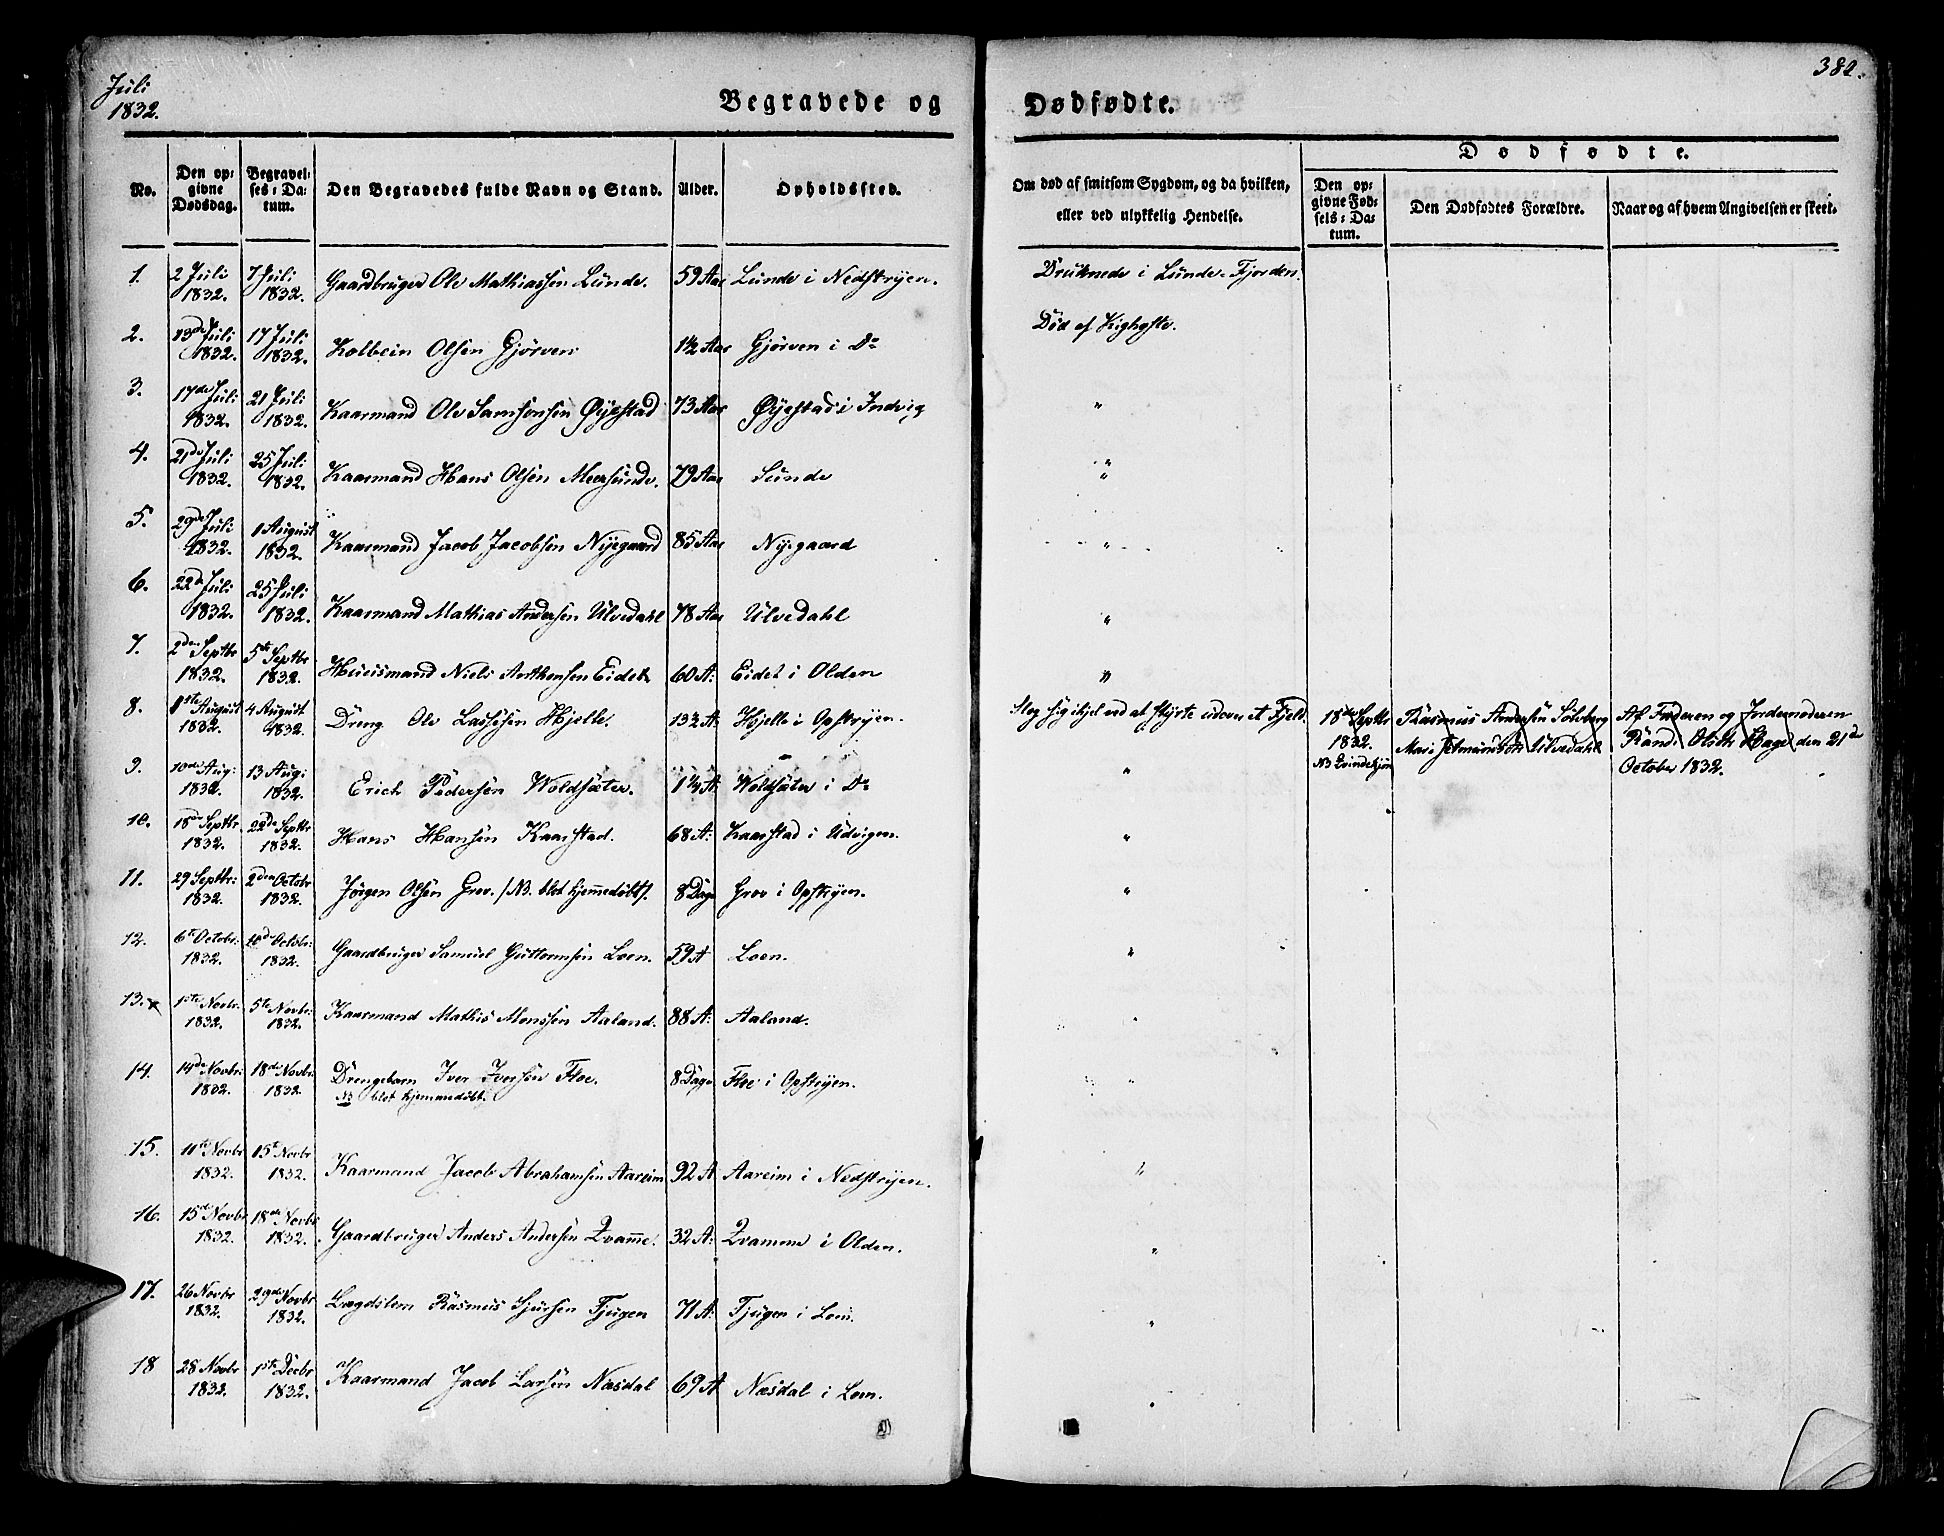 Juli
1832.
382.
Begravede og Dødfødte.
Dødfødte.
No.
Den opgivne Dødsdag.
Begravelses-Datum.
Den Begravedes fulde Navn og Stand.
Alder.
Opholdssted.
Om død af smitsom Sygdom, og da hvilken,
eller ved ulykkelig Hendelse.
Den opgivne Fødsels-Datum.
Den Dødfødtes Forældre.
Naar og af hvem Angivelsen er skeet.
1. 2 Juli 1832. 7 Juli 1832. Gaardbruger Ole Mathiassen Lunde. 59 Aar Lunde i Nedstryen. Druknede i Lunde-Fjorden.
2. 13de Juli 1832. 17 Juli 1832. Kolbein Olsen Gjørven 1½ Aar Gjørven i Do Død af Kighoste.
3. 17de Juli 1832. 21 Juli 1832. Kaarmand Ole Samsonsen Øyestad 73 Aar Øyestad i Indvig "
4. 21de Juli 1832. 25 Juli 1832. Kaarmand Hans Olsen Meersunde. 79 Aar Sunde "
5. 29de Juli 1832. 1 August 1832. Kaarmand Jacob Jacobsen Nyegaard 85 Aar Nyegaard "
6. 22de Juli 1832. 25 Juli 1832. Kaarmand Mathias Andersen Ulvedahl 78 Aar Ulvedahl "
7. 2den Septbr 1832. 5te Septbr 1832. Huusmand Niels Anthonsen Eidet 60 A: Eidet i Olden "
8. 1ste August 1832. 4 August 1832. Dreng Ole Lassesen Hjelle. 13½ A: Hjelle i Opstryen. Slog sig ihjel ved at styrte udover et Fjeld. 18de Septbr 1832. NB Qvindekjøn Rasmus Andersen Solberg Mari Ulvedahl Af Faderen og Jordemoderen Randi Olsdr Hage den 21de October 1832.
9. 10de Aug: 1832. 13 Aug: 1832. Erich Pedersen Woldsæter. 1¼ A Woldsæter i Do "
10. 18de Septbr 1832. 22de Septbr 1832. Hans Hansen Kaarstad. 68 A: Kaarstad i Udvigen. "
11. 29 Septbr: 1832. 2den Octobr 1832. Jørgen Olsen Grov. /NB. blot hjemmedøbt/. 8 Dage Grov i Opstryen. "
12. 6te Octobr: 1832. 10de Octobr: 1832. Gaardbruger Samuel Guttormsen Loen. 59 A Loen. "
13. x 1ste Novbr: 1832. 5te Novbr: 1832. Kaarmand Mathis Monssen Aaland. 88 A: Aaland. "
14. 14de Novbr: 1832. 18de Novbr: 1832. Drengebarn Iver Iversen Floe. NB blot hjemmedøbt. 8 Dage Floe i Opstryen. "
15. 11te Novbr 1832. 15te Novbr 1832. Kaarmand Jacob Abrahamsen Aareim 92 A Aareim i Nedstryen. "
16. 15de Novbr 1832. 18de Novbr 1832. Gaardbruger Anders Andersen Qvam̅e. 32 A: Qvamme i Olden. "
17. 26 Novbr 1832. 29de Novbr 1832. Lægdslem Rasmus Sjursen Tjugen 71 A: Tjugen i Loen. "
18 28 Novbr 1832. 1ste Decbr 1832. Kaarmand Jacob Larsen Næsdal 69 A Næsdal i Loen. "